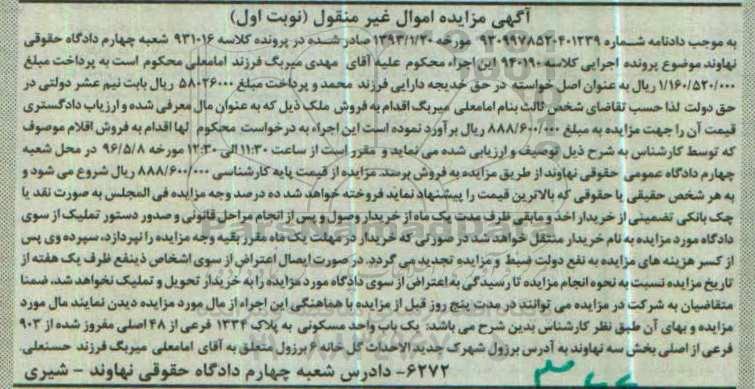 آگهی مزایده اموال غیر منقول (نوبت اول)
به موجب دادنامه شماره ۹۳۰۹۹۷۸۵۲۰۴۰۱۲۳۹ مورخه ۱۳۹۳/۱/۲۰ صادر شده در پرونده کلاسه ۹۳۱۰۱۶ شعبه چهارم دادگاه حقوقی
نهاوند موضوع پرونده اجرایی کلاسه ۹۴۰۱۹۰ این اجراء محکوم علیه آقای مهدی میربگ فرزند امامعلی محکوم است به پرداخت مبلغ
۱/۱۶۰/۵۲۰/۰۰۰ ریال به عنوان اصل خواسته در حق خدیجه دارایی فرزند محمد و پرداخت مبلغ ۵۸۰۲۶۰۰۰ ریال بابت نیم عشر دولتی در
حق دولت لذا حسب تقاضای شخص ثالث بنام امامعلی میربگ اقدام به فروش ملک ذیل که به عنوان مال معرفی شده و ارزیاب دادگستری
قیمت آن را جهت مزایده به مبلغ ۸۸۸/۶۰۰/۰۰۰ ریال برآورد نموده است این اجراء به درخواست محکوم لها اقدام به فروش اقلام موصوف
که توسط کارشناس به شرح ذیل توصیف و ارزیابی شده می نماید و مقرر است از ساعت ۱۱:۳۰ الی ۱۲:۳۰ مورخه ۹۶/۵/۸ در محل شعبه
چهارم دادگاه عمومی حقوقی نهاوند از طریق مزایده به فروش برسد. مزایده از قیمت پایه کارشناسی ۸۸۸/۶۰۰/۰۰۰ ریال شروع می شود و
به هر شخص حقیقی یا حقوقی که بالاترین قیمت را پیشنهاد نماید فروخته خواهد شد ده درصد وجه مزایده فی المجلس به صورت نقد یا
چک بانکی تضمینی از خریدار اخذ و مابقی ظرف مدت یک ماه از خریدار وصول و پس از انجام مراحل قانونی و صدور دستور تملیک از سوی
دادگاه مورد مزایده به نام خریدار منتقل خواهد شد در صورتی که خریدار در مهلت یک ماه مقرر بقیه وجه مزایده را نپردازد، سپرده وی پس
از کسر هزینه های مزایده به نفع دولت ضبط و مزایده تجدید می گردد. در صورت ایصال اعتراض از سوی اشخاص ذینفع ظرف یک هفته از
تاریخ مزایده نسبت به نحوه انجام مزایده تا رسیدگی به اعتراض از سوی دادگاه مورد مزایده را به خریدار تحویل و تملیک نخواهد شد. ضمنا
متقاضیان به شرکت در مزایده می توانند در مدت پنج روز قبل از مزایده با هماهنگی این اجراء از مال مورد مزایده دیدن نمایند مال مورد
مزایده و بهای آن طبق نظر کارشناس بدین شرح می باشد: یک باب واحد مسکونی به پلاک ۱۳۳۴ فرعی از ۴۸ اصلی مفروز شده از ۹۰۳
فرعی از اصلی بخش سه نهاوند به آدرس برزول شهرک جدیدالاحداث گل خانه ۶ برزول متعلق به آقای امامعلی میربگ فرزند حسنعلی.
۶۲۷۲- دادرس شعبه چهارم دادگاه حقوقی نهاوند - شیری